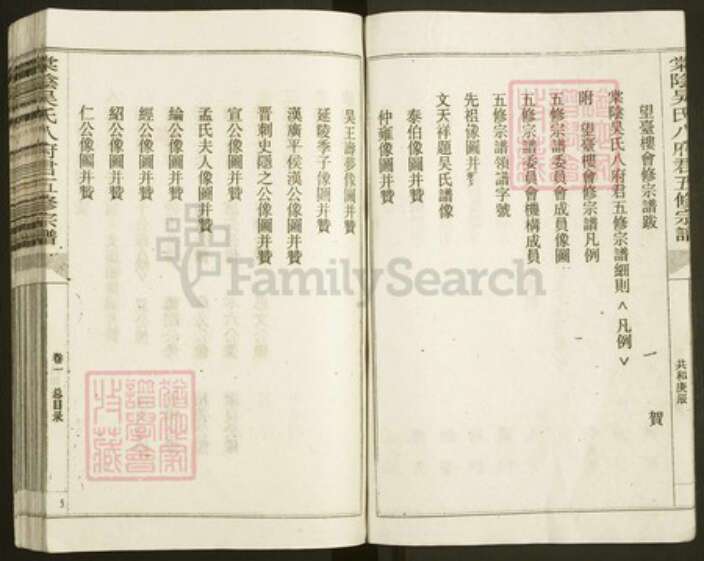 棠陰吳氏八府君五修宗譜
共和庚辰
望臺樓會修宗譜跋
一
賀
棠陰吳氏八府君五修宗譜細則<凡例>
附 望臺樓會修宗譜凡例
五修宗譜委員會成員像圖
五修宗譜委員會機構成員
五修宗譜領譜字號
先祖像圖并
文天祥題吳氏譜像
泰伯像圖并贊
仲雍像圖并贊
吳王壽夢像圖并贊
延陵季子像圖并贊
漢廣平侯漢公像圖并贊
晋刺史隱之公像圖并贊
宣公像圖并贊
孟氏夫人像圖并贊
綸公像圖并贊
經公像圖并贊
紹公像圖并贊
仁公像圖并贊
棠陰吳氏八府君五修宗譜
卷一 总目录
5
譜學會
特藏
FamilySearch